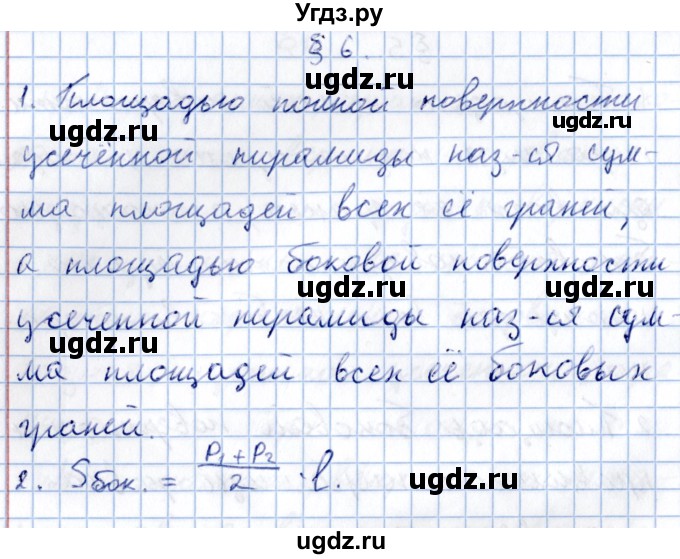 Угдз.ру
§ 6.
1. Площадью полной поверхности
усечённой пирамиды наз-ся сум-
ма площадей всех её граней,
а площадью боковой поверхности
усеченной пирамиды наз-ся сум-
ма площадей всех её боковых
граней.
2. Sбок. = (P₁ + P₂)/2 · l.
ugdz.ru
ugdz.ru
ugdz.ru
ugdz.ru
ugdz.ru
ugdz.ru
ugdz.ru
ugdz.ru
ugdz.ru
ugdz.ru
ugdz.ru